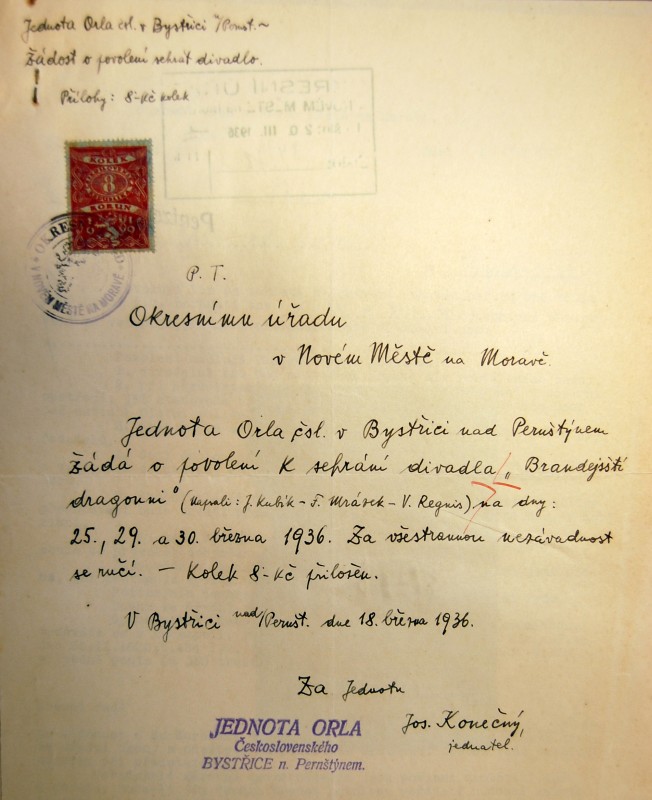 Jednota Orla čsl. v Bystřici n/Pernšt. ~
Žádost o povolení sehrát divadlo.
Přílohy: 8·Kč kolek
KOLEK
8
KORUN
OKRESNÍ
V NOVÉM MĚSTĚ NA MORAVĚ
P. T.
Okresnímu úřadu
v Novém Městě na Moravě.
Jednota Orla čsl. v Bystřici nad Pernštýnem
žádá o povolení k sehrání divadla „ Brandejští
dragouni" (napsali: J. Kubík – F. Mrázek – V. Regnis) na dny:
25., 29. a 30. března 1936. Za všestrannou nezávadnost
se ručí. — Kolek 8·Kč přiložen.
V Bystřici nad/Pernšt. dne 18. března 1936.
Za Jednotu
Jos. Konečný,
jednatel.
JEDNOTA ORLA
Československého
BYSTŘICE n. Pernštýnem.